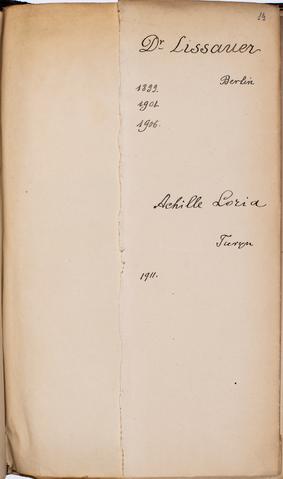 14
Dr Lissauer
Berlin
1899.
1901.
1906.
Achille Loria
Turyn
1911.